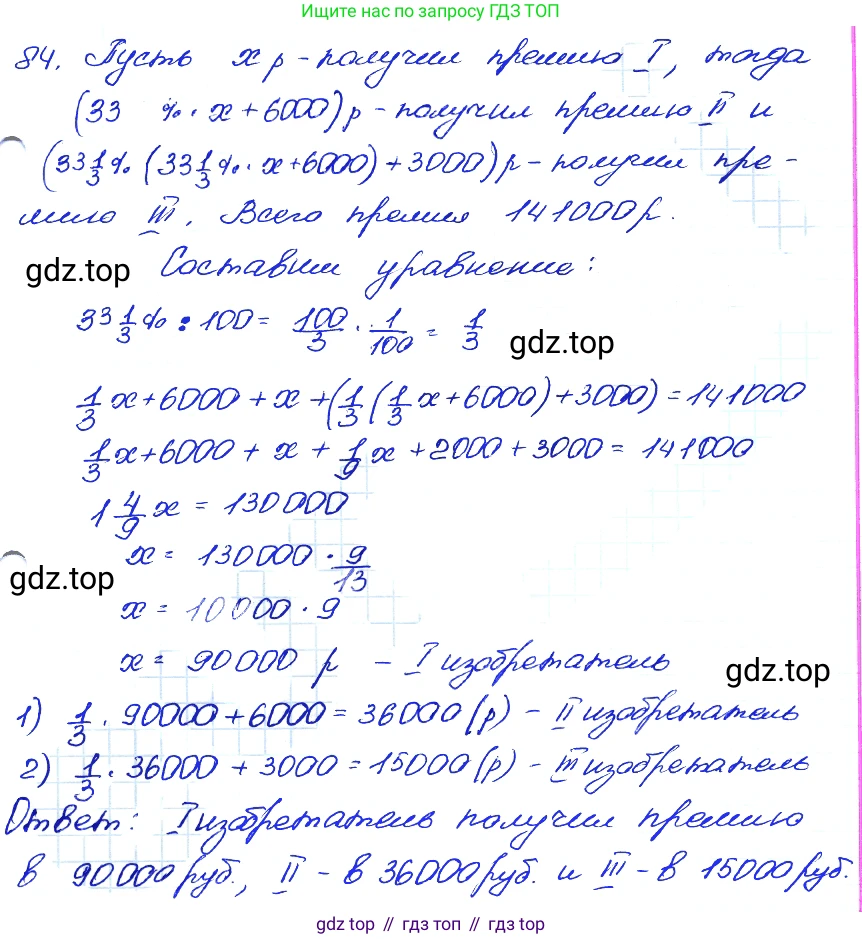 Ищите нас по запросу ГДЗ ТОП
84. Пусть x р - получил премию I, тогда
(33 % · x + 6000) р - получил премию II и
(33 1/3 % (33 1/3 % · x + 6000) + 3000) р - получил пре-
мию III. Всего премия 141000 р.
gdz.top Составим уравнение:
33 1/3 % : 100 = 100/3 · 1/100 = 1/3 gdz.top
1/3 x + 6000 + x + (1/3 (1/3 x + 6000) + 3000) = 141000
1/3 x + 6000 + x + 1/9 x + 2000 + 3000 = 141000
1 4/9 x = 130000
x = 130000 · 9/13
gdz.top
x = 10000 · 9
x = 90000 р - I изобретатель gdz.top
1) 1/3 · 90000 + 6000 = 36000 (р) - II изобретатель
2) 1/3 · 36000 + 3000 = 15000 (р) - III изобретатель
Ответ: I изобретатель получил премию
в 90000 руб., II - в 36000 руб. и III - в 15000 руб.
gdz top // гдз топ // gdz top